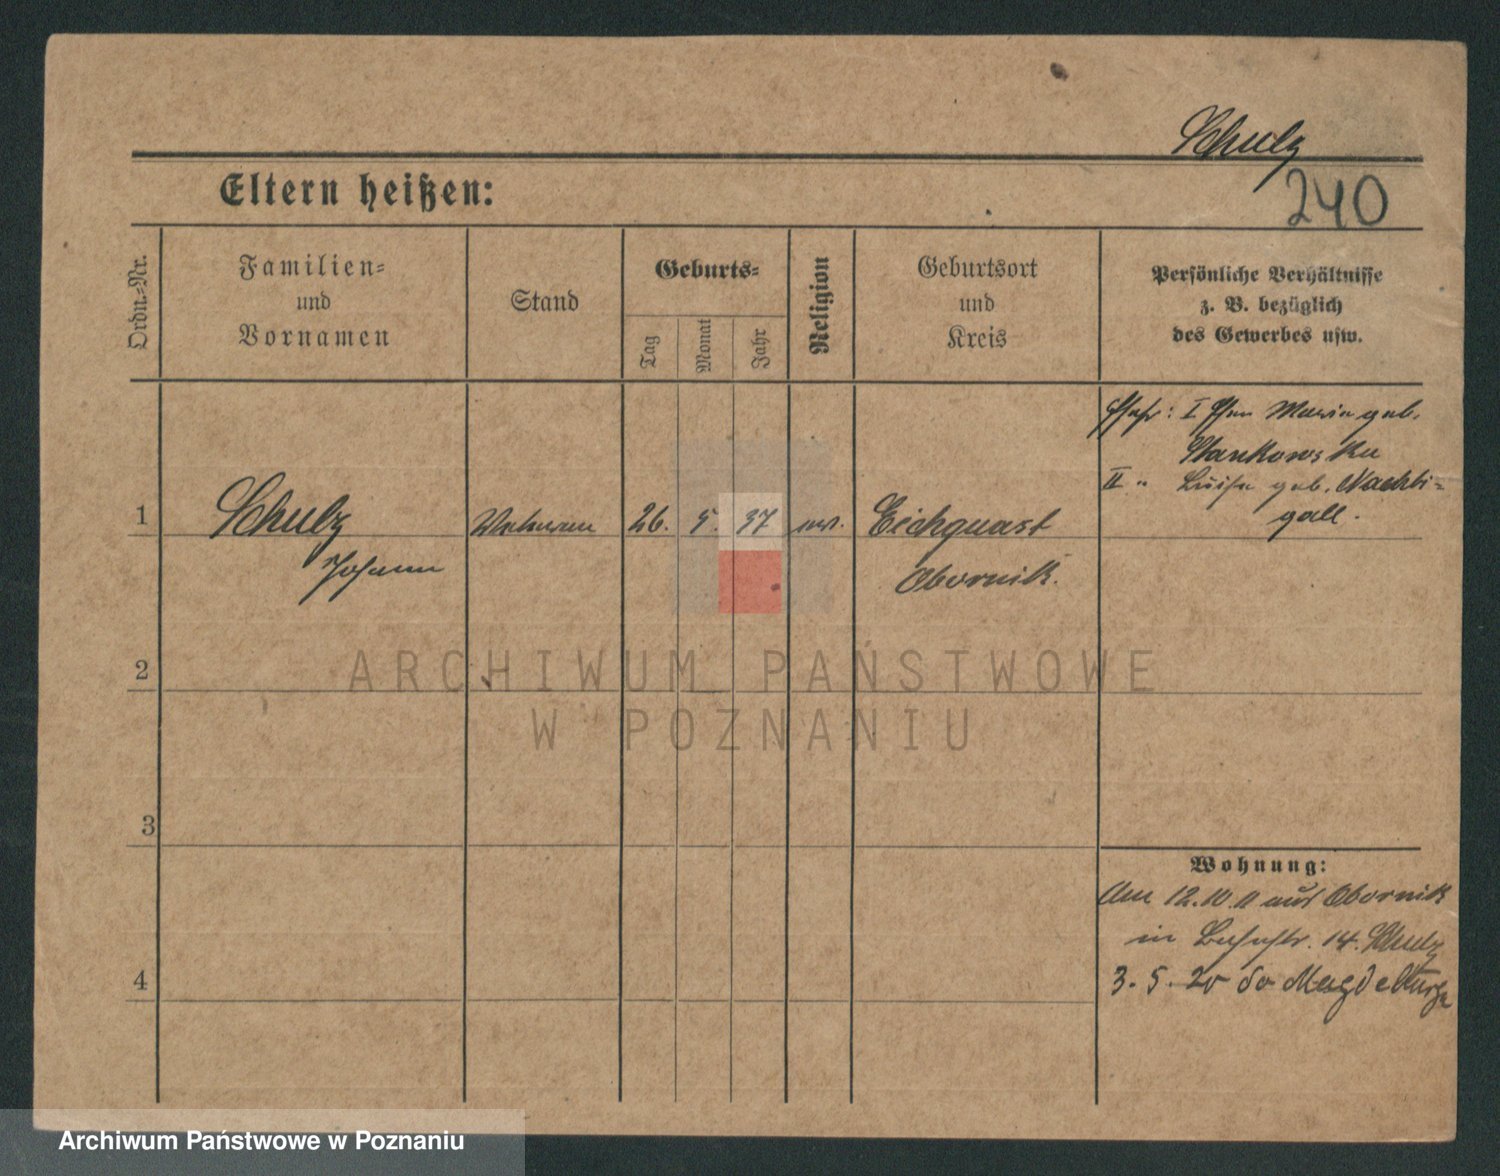 Schulz
240
Eltern heißen:
Ordn.-Nr.
Familien-
und
Vornamen
Stand
Geburts-
Tag
Monat
Jahr
Religion
Geburtsort
und
Kreis
Persönliche Verhältnisse
z. B. bezüglich
des Gewerbes usw.
I Maria geb.
Stankowska
II " Luise geb. Nachti-
gall.
1 Schulz 26. 5. 37 Eichquast
Johann Obornik.
2
3
4
ARCHIWUM PAŃSTWOWE
W POZNANIU
Wohnung:
Am 12.10.11 aus Obornik
in 14. Schulz
3. 5. 20 Magdeburg
Archiwum Państwowe w Poznaniu